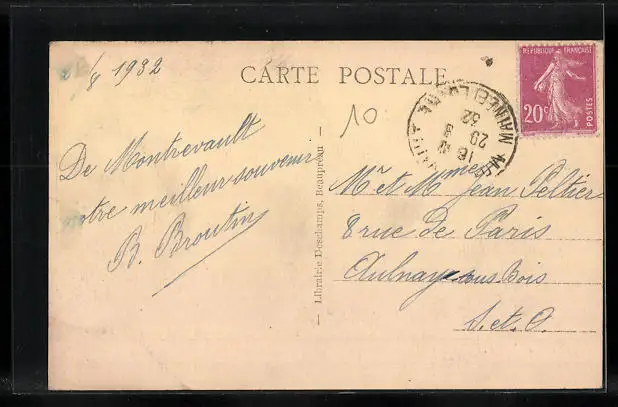 /8 1932
CARTE POSTALE
RÉPUBLIQUE FRANÇAISE
20c
POSTES
10
De Montrevault
notre meilleur souvenir
B. Broutin
Librairie Deschamps, Beaupréau
16
20
8
32
Mr et Mmes Jean Peltier
8 rue de Paris
Aulnay sous Bois
S. et O.